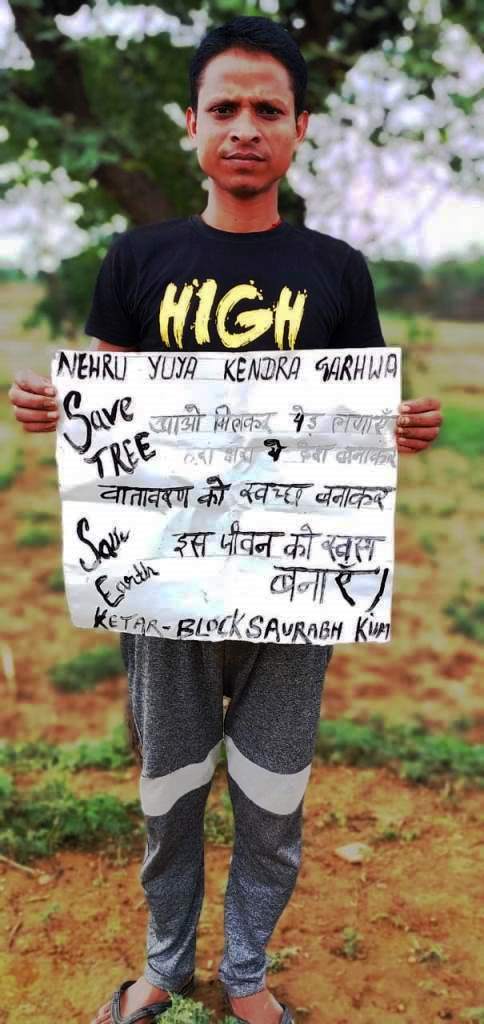 HIGH
NEHRU YUVA KENDRA GARHWA
Save
TREE
आओ मिलकर पेड़ लगाएँ
हरा भरा ये देश बनाकर
वातावरण को स्वच्छ बनाकर
Save
Earth
इस जीवन को स्वस्थ
बनाएँ।
KETAR-BLOCK SAURABH KUM